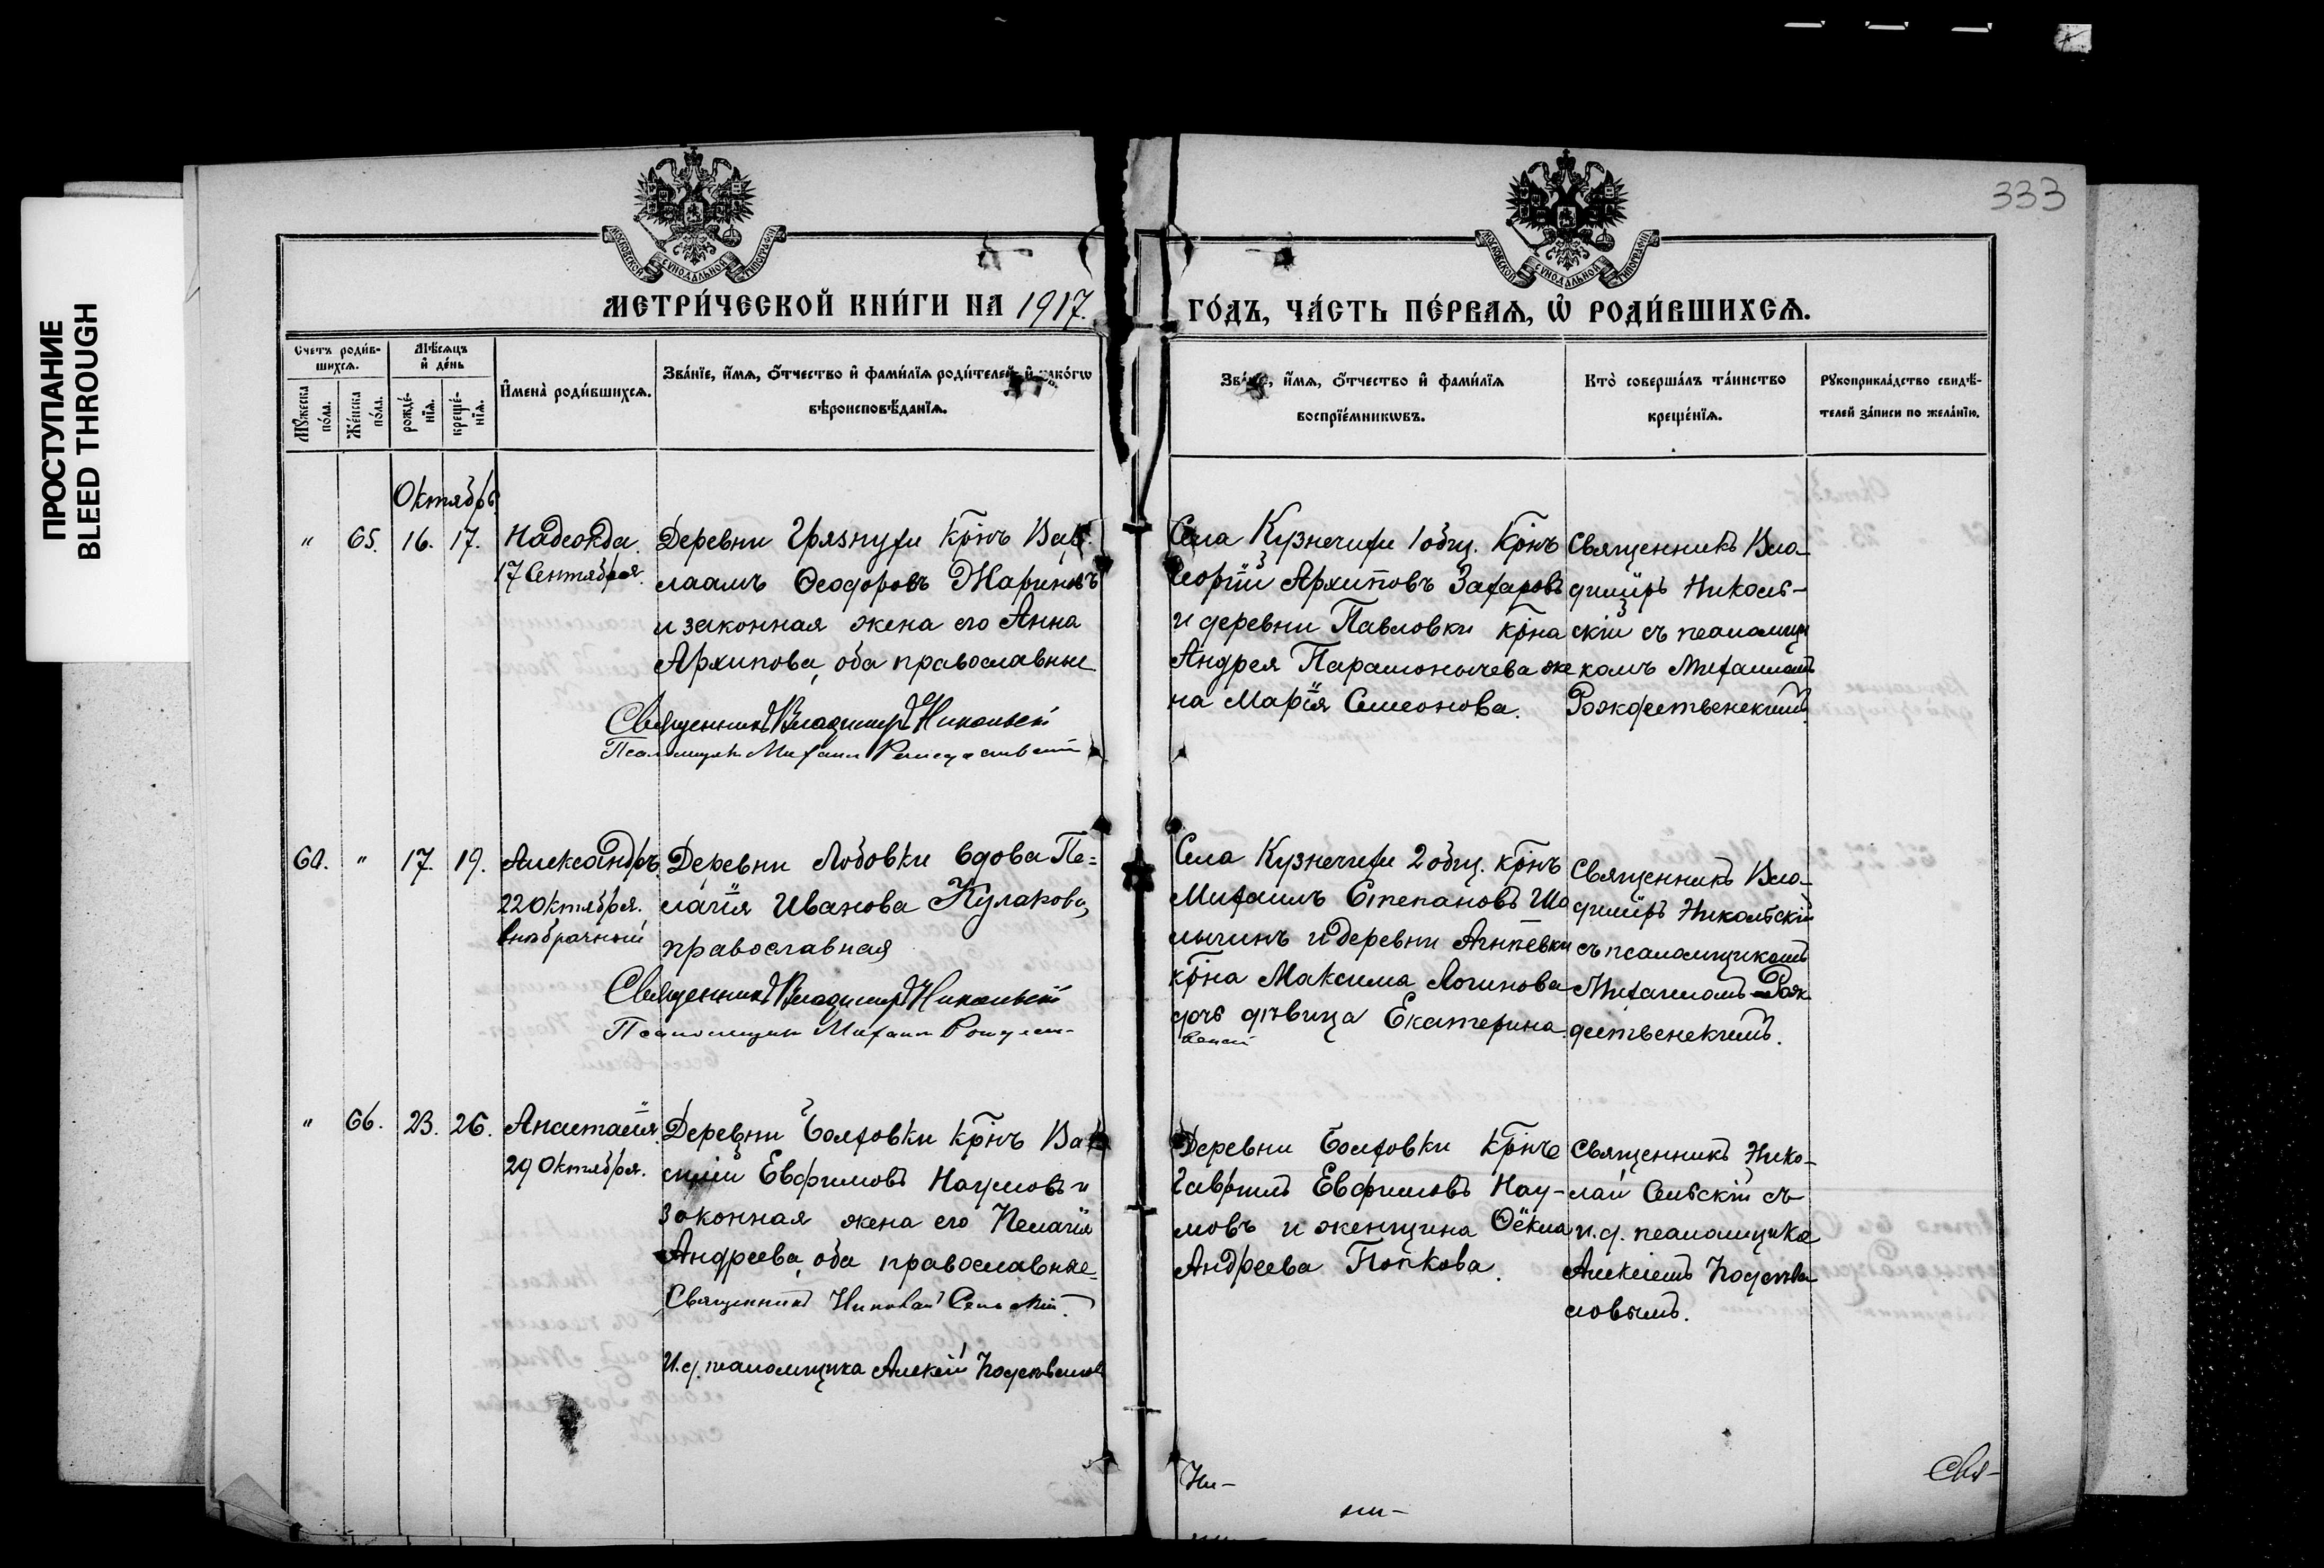 ПРОСТУПАНИЕ
BLEED THROUGH
333
МОСКОВСКОЙ СѴНОДАЛЬНОЙ ТИПОГРАФІИ
МОСКОВСКОЙ СѴНОДАЛЬНОЙ ТИПОГРАФІИ
МЕТРИ́ЧЕСКОЙ КНИ́ГИ НА 1917.
ГО́ДЪ, ЧА́СТЬ ПЕ́РВАѦ, Ѿ РОДИ́ВШИХСѦ.
Счетъ роди́в-
шихсѧ.
Мѣ́сѧцъ
и҆ де́нь
Мꙋ́жеска
по́ла.
Же́нска
по́ла.
рожде́-
нїѧ.
креще́-
нїѧ.
И҆мена̀ роди́вшихсѧ.
Зва́нїе, и҆́мѧ, ѻ҆́тчество и҆ фами́лїѧ роди́телей, и҆ како́гѡ
вѣроисповѣ́данїѧ.
Зва́нїе, и҆́мѧ, ѻ҆́тчество и҆ фами́лїѧ
воспрїе́мникѡвъ.
Кто̀ соверша́лъ та́инство
креще́нїѧ.
Рꙋкоприкла́дство свидѣ́-
телей за́писи по жела́нїю.
Октябрь
" 65. 16. 17.
Надежда.
17 Сентября.
Деревни Грязнухи крнъ Вар-
лаамъ Ѳеодоровъ Жариновъ
и законная жена его Анна
Архипова, оба православные
Священникъ Владимиръ Никольскій
Псаломщикъ Михаилъ Рождественскій
Села Кузнечихи 1 общ. крнъ
Георгій Архиповъ Захаровъ
и деревни Павловки крна
Андрея Парамонычева же
на Марія Симеонова.
Священникъ Вла-
димиръ Николь-
скій съ псаломщи
комъ Михаиломъ
Рождественскимъ.
60. " 17. 19.
Александръ.
22 Октября.
внѣбрачный
Деревни Лобовки вдова Пе-
лагія Иванова Кулакова,
православная
Священникъ Владимиръ Никольскій
Псаломщикъ Михаилъ Рождест-
Села Кузнечихи 2 общ. крнъ
Михаилъ Степановъ Ша
лыгинъ и деревни
крна Максима Логинова
дочь дѣвица Екатерина.
венскій
Священникъ Вла-
димиръ Никольскій
съ псаломщикомъ
Михаиломъ Рож
дественскимъ.
" 66. 23. 26.
Анастасія.
29 Октября.
Деревни Болховки крнъ Ва
силій Евфимовъ Наумовъ и
законная жена его Пелагія
Андреева, оба православные
Священникъ Николай Сельскій.
И.д. псаломщика Алексій
Деревни Болховки крнъ
Гавріилъ Евфимовъ Нау-
мовъ и женщина Ѳёкла
Андреева Попкова.
Священникъ Нико-
лай Сельскій съ
и.д. псаломщика
Алексіемъ
ловымъ.
Свя-
Ни-